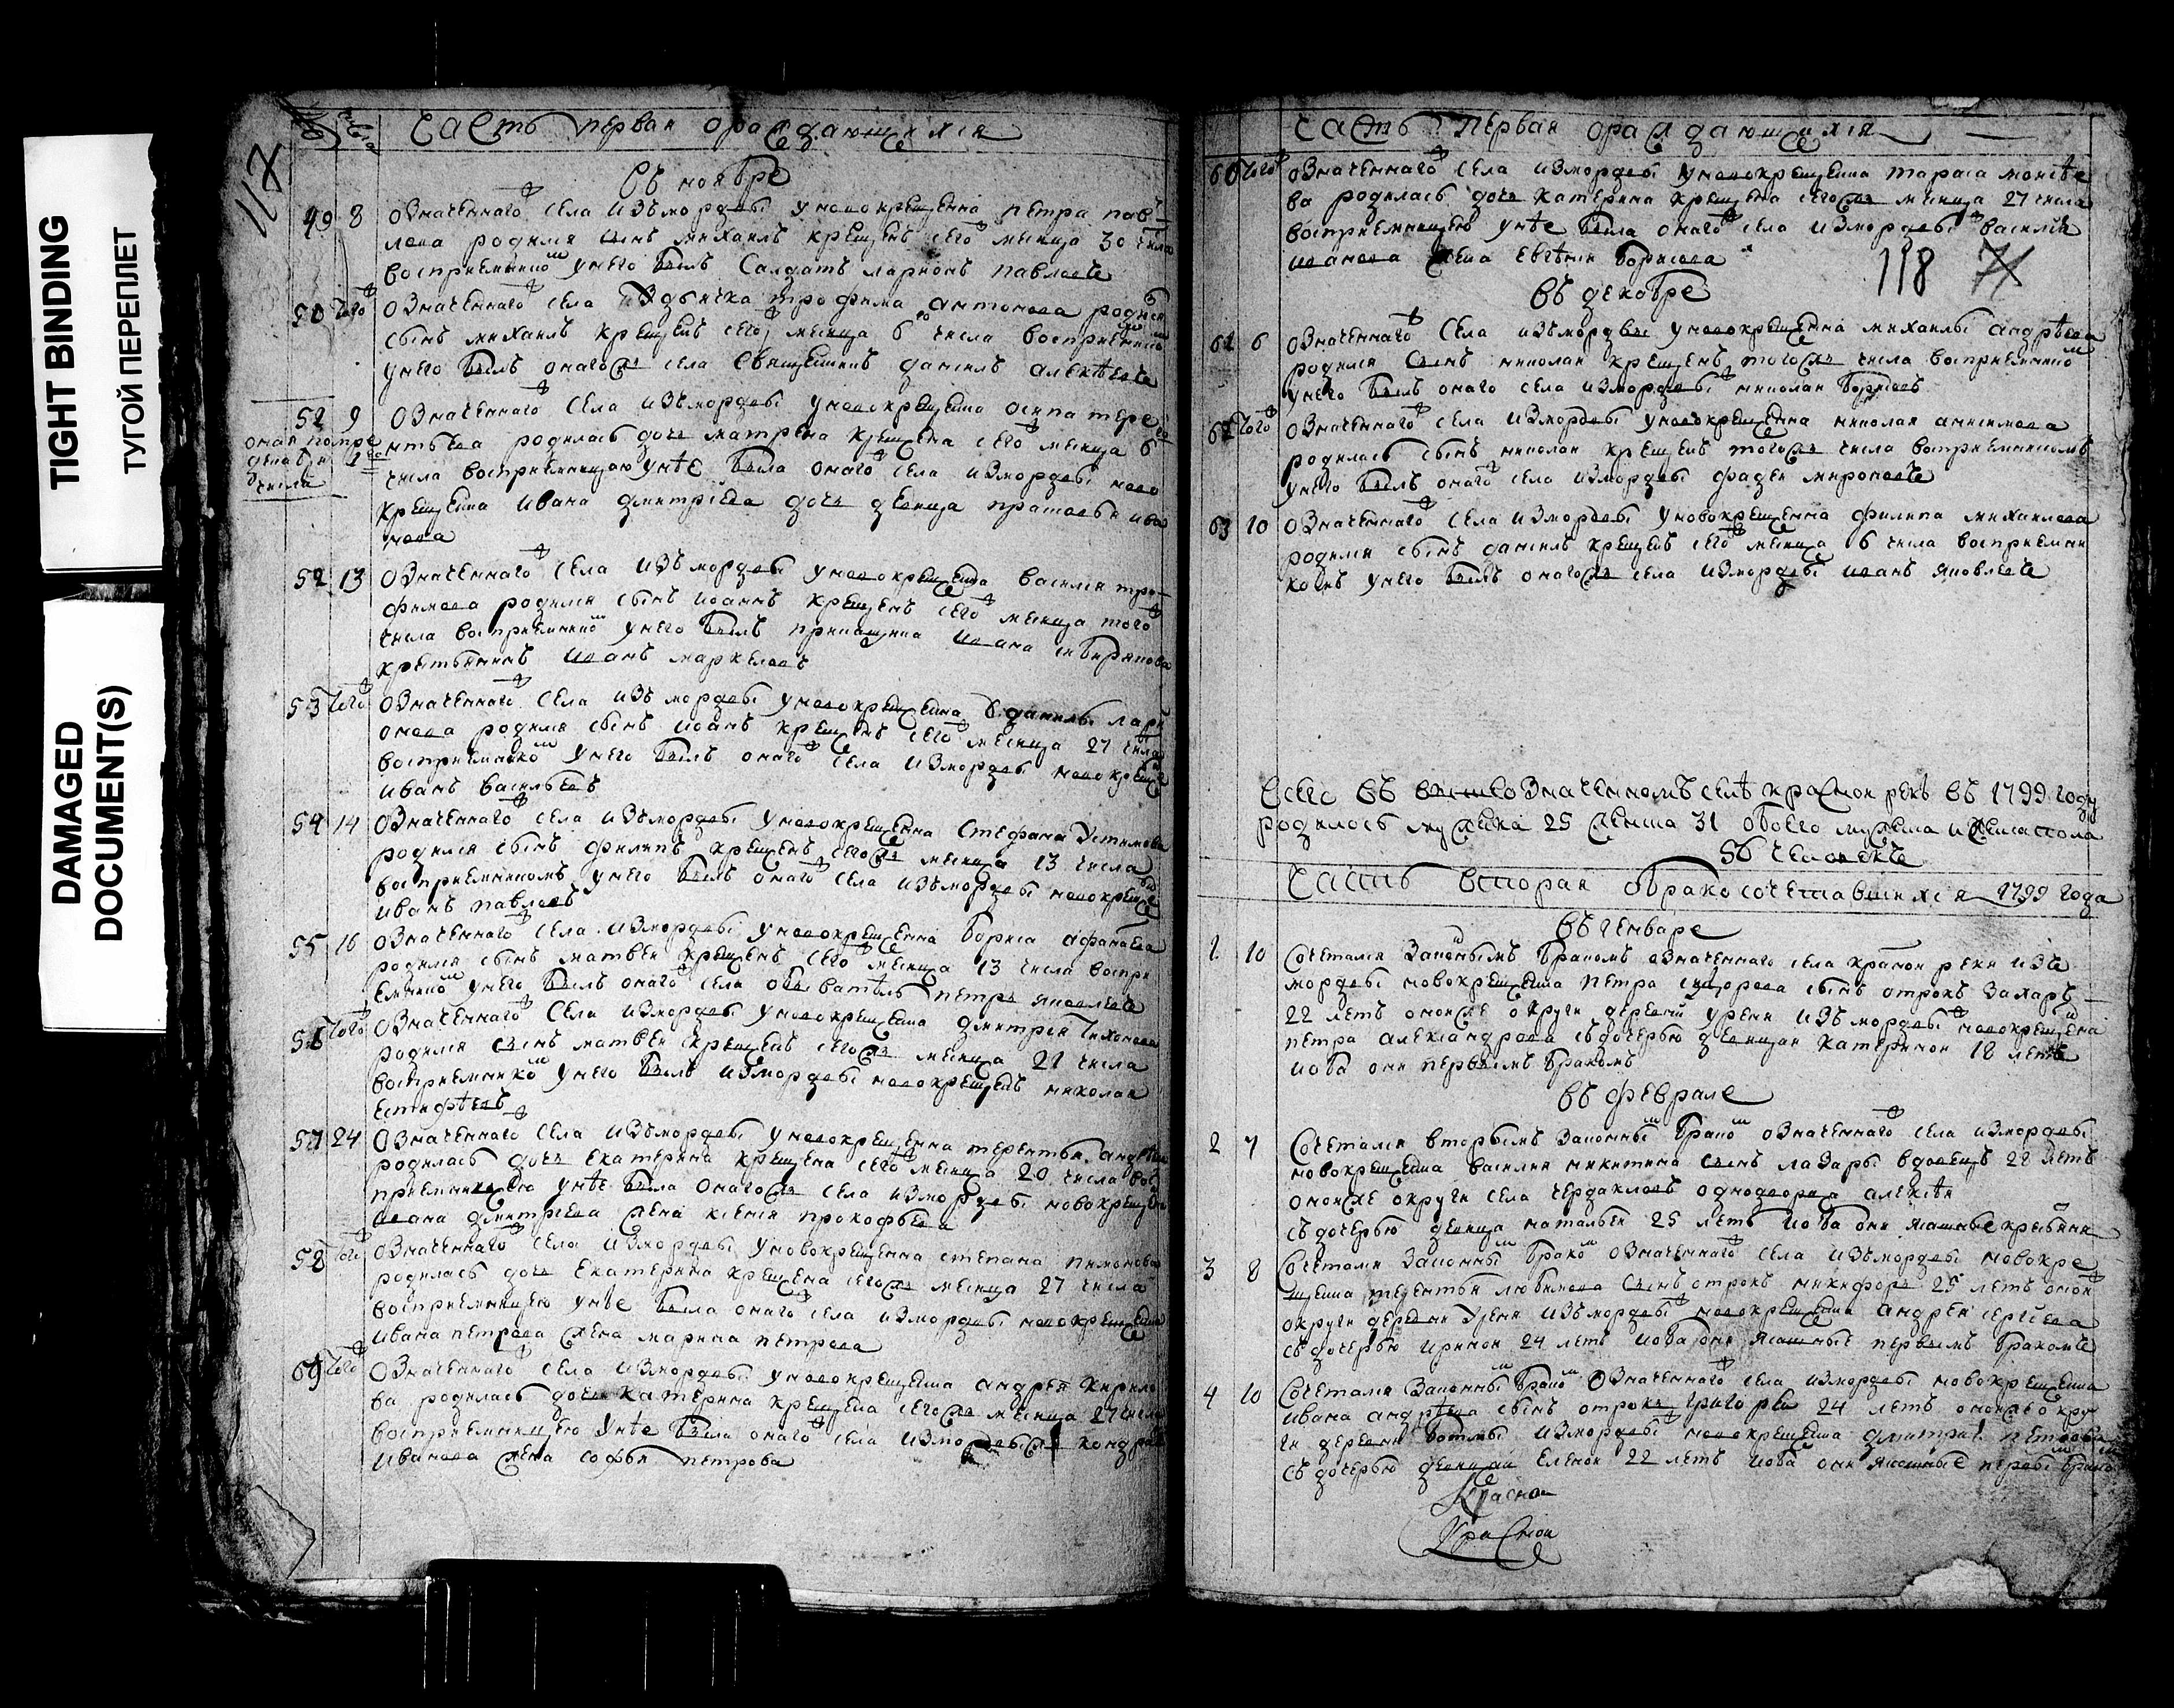 TIGHT BINDING
ТУГОЙ ПЕРЕПЛЕТ
DAMAGED
DOCUMENT(S)
117
часть первая ораждающихся
въ ноябре
49 8 означеннаго села изъ мордвы у новокрещена петра пав
лова родился сынъ михаилъ крещенъ сего месяца 30 числа
восприемником у него былъ Салдатъ ларионъ павловъ
50 того означеннаго села трофима антонова родился
сынъ михаилъ крещенъ сего месяца 6 числа восприемником
у него былъ онагожъ села Священникъ данилъ алексѣевъ
52 9 означеннаго села изъ мордвы у новокрещена осипа тере
нтьева родилась дочь матрена крещена сего месяца 6
числа восприемницею у нѣе была онаго села изъ мордвы ново
крещена ивана дмитрiева дочь девица прасковья ива
нова
52 13 означеннаго села изъ мордвы у новокрещена василия тро
фимова родился сынъ иоаннъ крещенъ сего месяца того
числа восприемником у него былъ ивана
крестьянинъ иванъ маркеловъ
53 того означеннаго села изъ мордвы у новокрещена данилы лари
онова родился сынъ иоанъ крещенъ сего месяца 27 числа
восприемником у него былъ онаго села изъ мордвы новокрещенъ
иванъ васильевъ
54 14 означеннаго села изъ мордвы у новокрещена Стефана Устинова
родился сынъ филипъ крещенъ сегожъ месяца 13 числа
восприемникомъ у него былъ онаго села изъ мордвы новокрещенъ
иванъ павловъ
55 16 означеннаго села изъ мордвы у новокрещена бориса афанасева
родился сынъ матвей крещенъ сего месяца 13 числа воспри
емником у него былъ онаго села обыватель петръ яковлевъ
56 того означеннаго села изъ мордвы у новокрещена дмитрея Тихонова
родился сынъ матвей крещенъ сегожъ месяца 21 числа
восприемником у него былъ изъ мордвы новокрещенъ николай
естифѣевъ
57 24 означеннаго села изъ мордвы у новокрещена терентья андрѣева
родилась дочь екатерина крещена сего месяца 20 числа вос
приемницею у нѣе была онагожъ села изъ мордвы новокрещена
ивана дмитрiева жена ксения прокофьева
58 того означеннаго села изъ мордвы у новокрещенна степана
родилась дочь екатерина крещена сегожъ месяца 27 числа
восприемницею у нѣе была онаго села изъ мордвы новокрещена
ивана петрова жена марина петрова
69 того означеннаго села изъ мордвы у новокрещена андрея кирило
ва родилась дочь катерина крещена сегожъ месяца 27 числа
восприемницею у нѣе была онаго села изъ мордвы
иванова жена софья петрова
часть первая ораждающихся
60 того означеннаго села изъ мордвы у новокрещена тараса моисѣе
ва родилась дочь катерина крещена сегожъ месяца 27 числа
восприемницею у нѣе была онаго села изъ мордвы василья
иванова жена евгения борисова
118 71
въ декобре
61 6 означеннаго села изъ мордвы у новокрещена михаилы андрѣева
родился сынъ николай крещенъ тогожъ числа восприемником
у него былъ онаго села изъ мордвы николай борисовъ
62 того означеннаго села изъ мордвы у новокрещенна николая анисимова
родилась сынъ николай крещенъ тогожъ числа восприемникомъ
у него былъ онаго села изъ мордвы фадей мироновъ
63 10 означеннаго села изъ мордвы у новокрещенна филипа михаилова
родился сынъ данилъ крещенъ сего месяца 6 числа восприемни
комъ у него былъ онагожъ села изъ мордвы иванъ яковлевъ
всего въ вышеозначенномъ селѣ красной рекѣ въ 1799 году
родилось мужска 25 женска 31 обоего мужска и женска пола
56 человекъ
часть вторая обракосочетавшихся 1799 года
въ генваре
1 10 Сочетался законнымъ бракомъ означеннаго села красной реки изъ
мордвы новокрещена петра сидорова сынъ отрокъ захаръ
22 летъ онойже округи деревни урени изъ мордвы новокрещена
петра александрова съ дочерью девицей катериной 18 летъ
иоба они первымъ бракомъ
въ феврале
2 7 Сочетался вторымъ законным браком означеннаго села изъ мордвы
новокрещена василия никитина сынъ лазарь вдовецъ 28 летъ
онойже округи села чердаковъ однодворца алексѣя
съ дочерью девица натальей 25 летъ иоба они ясашные крестьяня
3 8 Сочетался законным браком означеннаго села изъ мордвы новокре
щена терентья любимова сынъ отрокъ никифоръ 25 летъ оной
округи деревни Урени изъ мордвы новокрещена андрея сергѣева
съ дочерью ириной 24 летъ иоба они ясашные первымъ бракомъ
4 10 Сочетался законным браком означеннаго села изъ мордвы новокрещена
ивана андрѣева сынъ отрокъ григорей 24 летъ онойже окру
ги деревни ботмы изъ мордвы новокрещена дмитрея петрова
съ дочерью девицей еленой 22 летъ иоба они ясашные первым браком
Красной
Красной